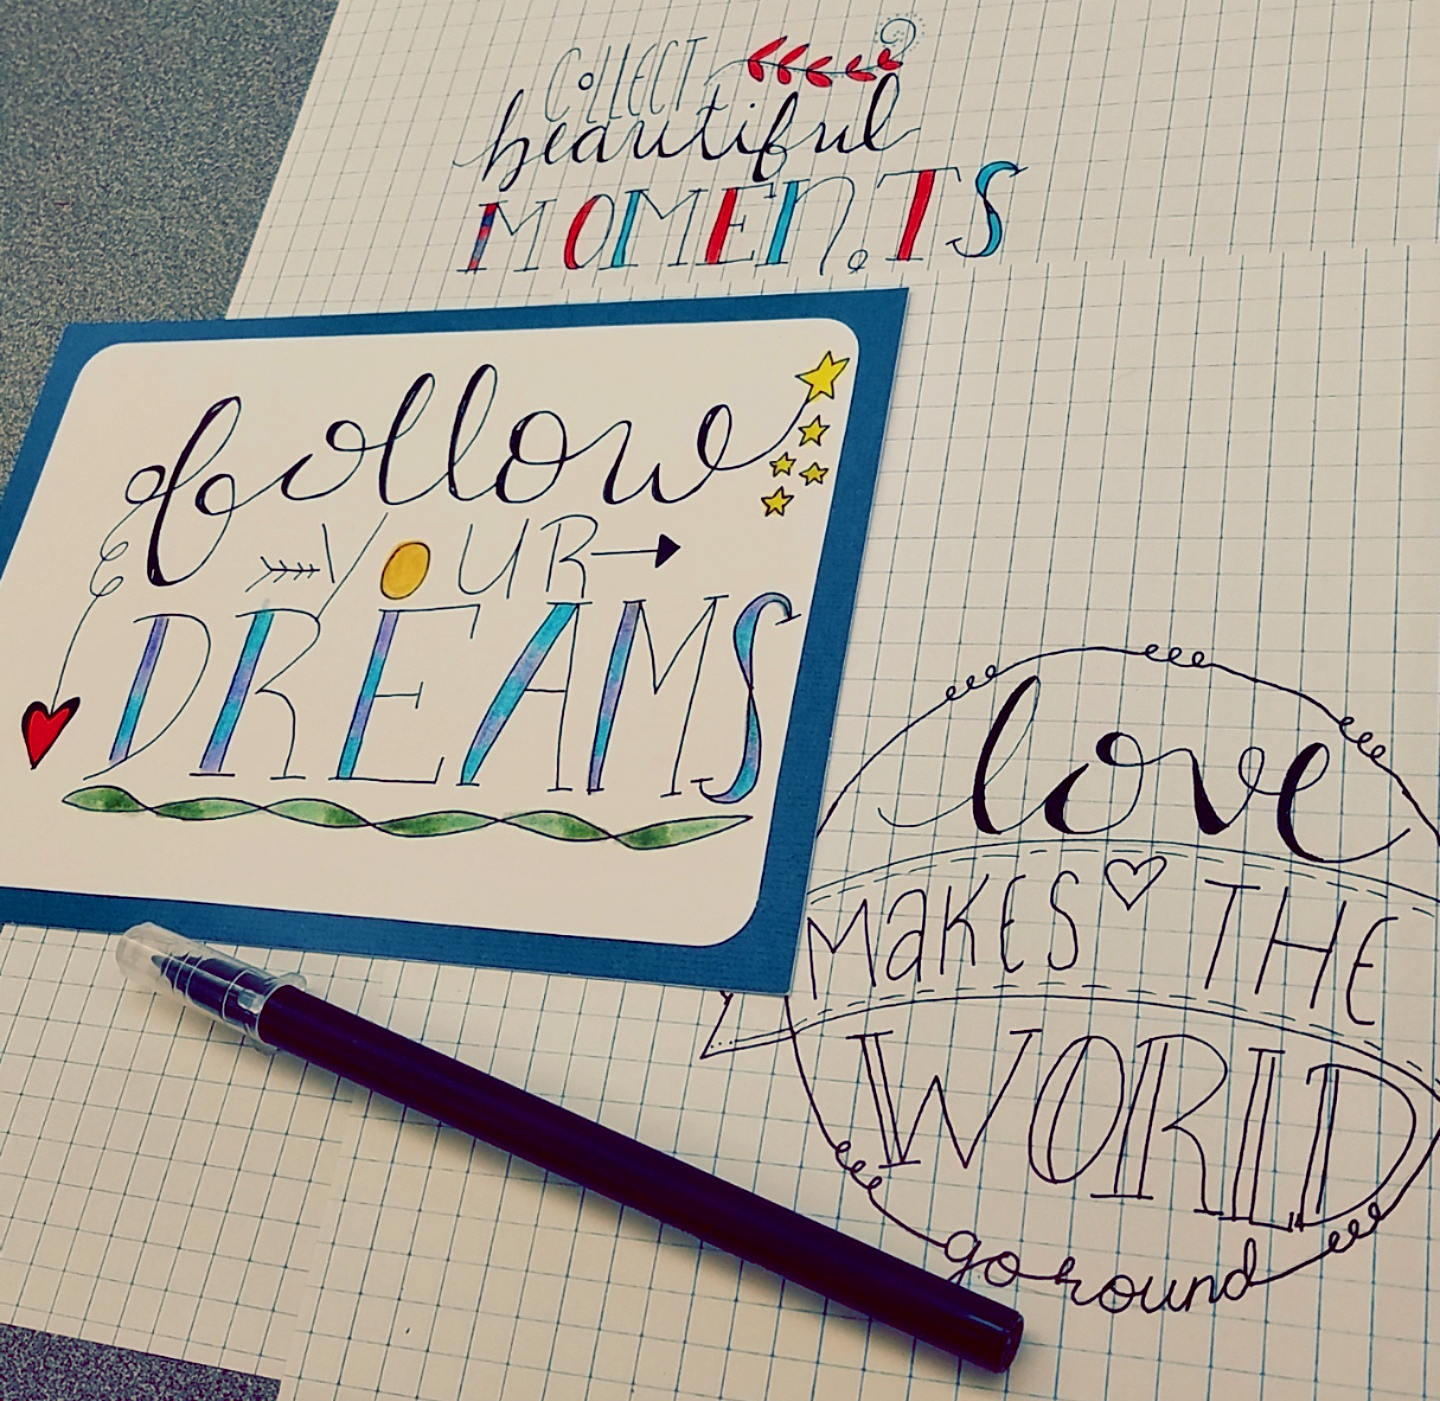 COLLECT
beautiful
MOMENTS
follow
YOUR
DREAMS
love
MaKES THE
WORLD
go round